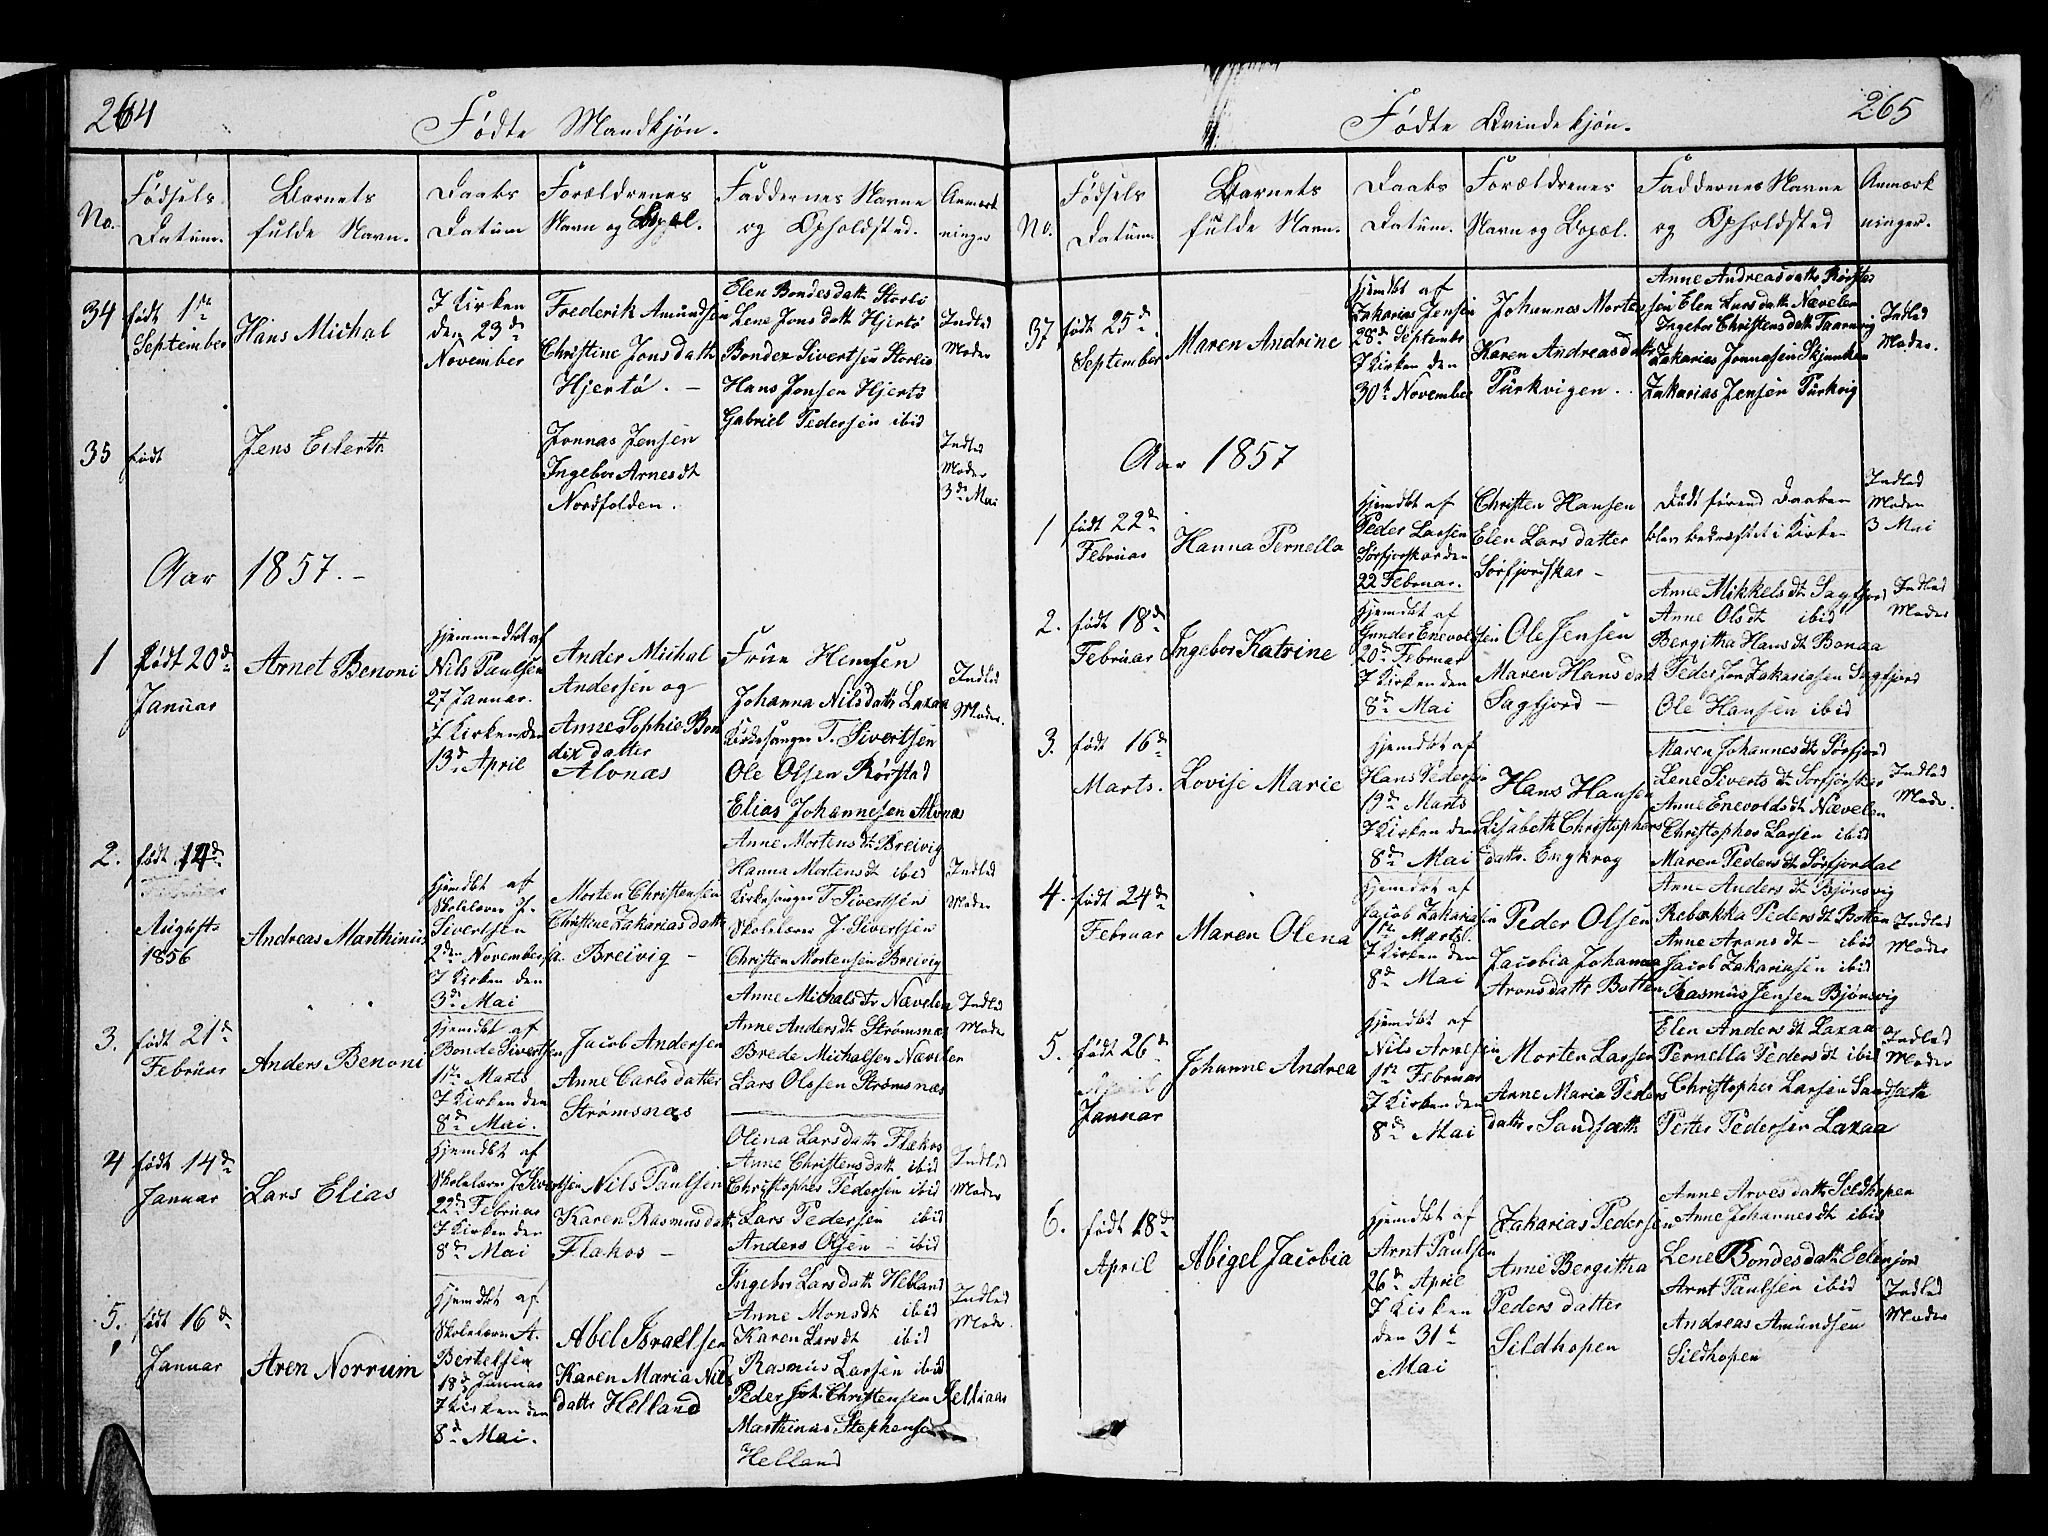 264
Fødte Mandkjøn.
No.
Fødsels
Datum.
Barnets
fulde Navn.
Daabs
Datum
Forældrenes
Navn og Bopæl.
Faddernes Navne
og Opholdsted.
Anmærk
ninger
34
født 1ste
September
Hans Michal
I Kirken
den 23de
November
Frederik Amundsen
Christine Jonsdattr
Hjertø. -
Elen Bondesdattr Storlø
Lene Jonsdattr Hjertø
Bondez Sivertsen Storlø
Hans Jonsen Hjertø
Gabriel Pedersen ibid
Indled
Moder
35
født
Jens Eilerth
Jonnas Jensen
Ingebor Arnesdt
Nordfolden.
Indled
Moder
3de Mai
Aar 1857. -
1
Født 20de
Januar
Arnet Benoni
Hjemmedbt af
Nils Paulsen
27 Januar.
I Kirken den
13de April
Ander Michal
Andersen og
Anne Sophie Bon
dix datter
Alvnæs
Frue Hemsen
Johanna Nilsdattr Laxaa
Kirkesanger T. Sivertsen
Ole Olsen Rørstad
Elias Johannesen Alvnæs
Indled
Moder
2.
født 14de
August
1856
Andreas Marthinus
Hjemdbt af
Skolelærer J.
Sivertsen
2den November
I Kirken den
3de Mai
Morten Christensen
Christine Zakariasdattr
Breivig -
Anne Mortensdt Breivig
Hanna Mortensdt ibid
Kirkesanger T Sivertsen
Skolelærer J. Sivertsen
Christen Mortensen Breivig
Indled
Moder
3.
født 21de
Februar
Anders Benoni
Hjemdbt af
Bonde Sivertsen
1ste Marts
I Kirken den
8de Mai.
Jacob Andersen
Anne Carlsdatter
Strømsnæs
Anne Michalsdtr Nævelen
Anne Andersdt Strømsnæs
Brede Michalsen Nævelen
Lars Olssen Strømsnæs
Indled
Moder
4
født 14de
Januar
Lars Elias
Hjemdbt af
Skolelærer J Sivertsen
22de Februar
I Kirken den
8de Mai
Nils Paulsen
Karen Rasmusdatt
Flakos -
Olina Larsdattr Flakos
Anne Christensdattr ibid
Christopher Pedersen ibid
Lars Pedersen ibid
Anders Olsen - ibid
Indled
Moder
5.
født 16de
Januar
Aren Norrum
Hjemdbt af
Skolelærer A.
Berthelsen
18de Januar
I Kirken den
8de Mai.
Abel Israelsen
Karen Maria Nils
dattr Helland
Ingebor Larsdattr Helland
Anne Monsdt ibid
Karen Larsdt ibid
Rasmus Larsen ibid
Peder Joh. Christensen
Marthinus Stephensen
Helland
Indled
Moder
265
Fødte Qvindekjøn.
No.
Fødsels
Datum.
Barnets
fulde Navn.
Daabs
Datum.
Forældrenes
Navn og Bopæl.
Faddernes Navne
og Opholdsted
Anmærk
ninger.
37
født 25de
September
Maren Andrine
Hjemdbt af
Zakarias Jensen
28de Septembr
I Kirken den
30te November
Johannes Mortensen
Karen Andreasdattr
Purkvigen.
Anne Andreasdattr Rørstad
Elen Larsdattr Nævelen
Ingebor Christensdatt Taarnvig
Zakarias Jonnasen
Zakarias Jensen Purkvig
Indled
Moder.
Aar 1857
1
født 22de
Februar
Hanna Pernella
Hjemdbt af
Peder Larsen
Sørfjorskar den
22 Februar.
Christen Hansen
Elen Larsdatter
Sørfjordskar -
Døde førend Daaben
blev bekræftet i Kirken
Indled
Moder
3 Mai
2.
født 18de
Februar
Ingebor Katrine
Hjemdbt af
Gunder Enevoldsen
20de Februar
I Kirken den
8de Mai
Ole Jensen
Maren Hansdat
Sagfjord -
Anne Mikkelsdt Sagfjord
Anne Olsdt ibid
Bergitha Hansdt Bonaa
Peder Jon Zakariasen Sagfjord
Ole Hansen ibid
Indled
Moder
3.
født 16de
Marts.
Lovise Marie
Hjemdbt af
Hans Pedersen
19de Marts
I Kirken den
8de Mai
Hans Hansen
Lisabeth Christophers
dattr. Engkrog
Maren Johannesdt Sørfjord
Lene Sivertsdt Sørfjorskar
Anne Enevoldsdt Nævelen
Christopher Larsen ibid
Maren Pedersdt Sørfjordal
Indled
Moder.
4.
født 24de
Februar
Maren Olena
Hjemdbt af
Jacob Zakariasen
1ste Marts.
I Kirken den
8de Mai
Peder Olsen
Jacobia Johanna
Aronsdattr Botten
Anne Andersdt Bjønsvig
Rebækka Pedersdt Botten
Anne Aronsdt - ibid
Jacob Zakariasen ibid
Rasmus Jensen Bjønsvig
Indled
Moder
5.
født 26de
Januar
Johanne Andrea
Hjemdbt af
Nils Arnesen
1ste Februar
I Kirken den
8de Mai
Morten Larsen
Anne Maria Peders
dattr Sandsæth
Elen Andersdt Laxaa
Pernella Pedersdt ibid
Christopher Larsen Sandsæth
Petter Pedersen Laxaa
Indled
Moder
6.
født 18de
April
Abigel Jacobia
Hjemdbt af
Arnt Paulsen
26de April
I Kirken
den 31te
Mai
Zakarias Pedersen
Anne Bergitha
Pedersdatter
Sildhopen
Anne Arvesdattr Sildhopen
Anne Johannesdt ibid
Lene Bondesdattr
Arnt Paulsen ibid
Andreas Amundsen
Sildhopen
Indled
Moder